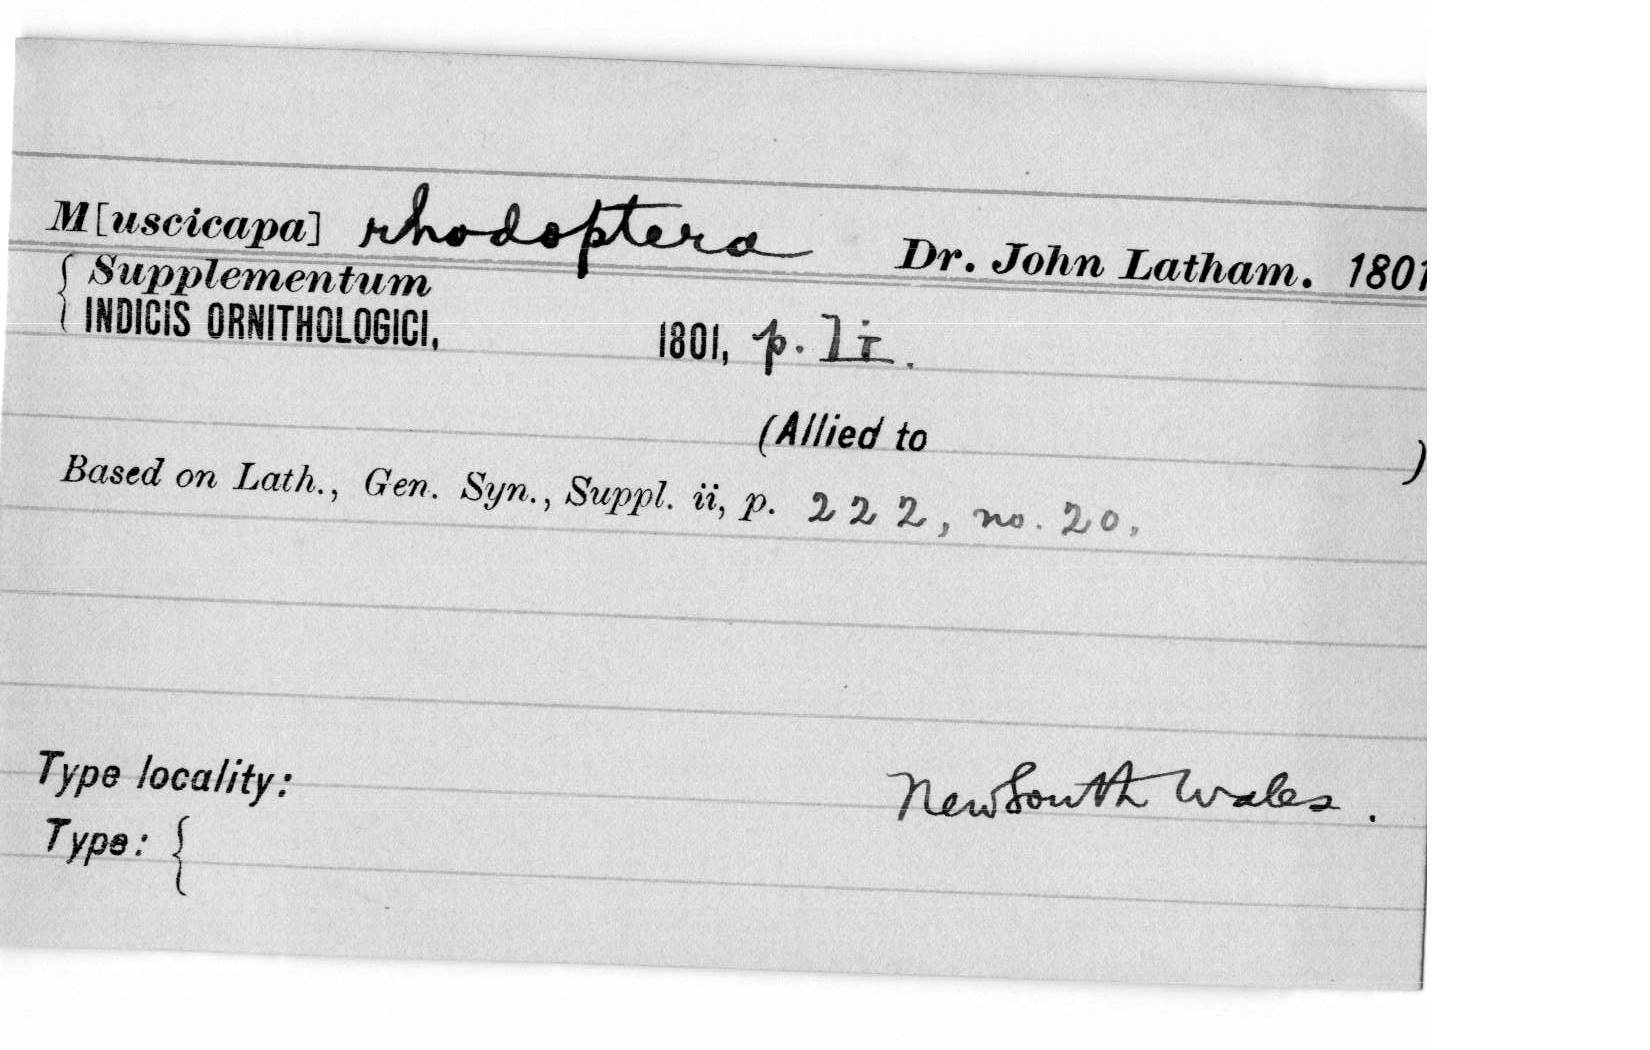 M[uscicapa] rhodoptera Dr. John Latham. 1801
{ Supplementum
INDICIS ORNITHOLOGICI, 1801, p. li.
(Allied to )
Based on Lath., Gen. Syn., Suppl. ii, p. 222, no. 20.
Type locality: New South Wales.
Type: {